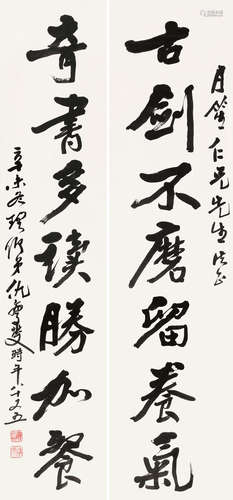 月笙仁兄先生法正
古劍不磨留養氣
奇書多讀勝加餐
辛未冬 弟 時年 十又五